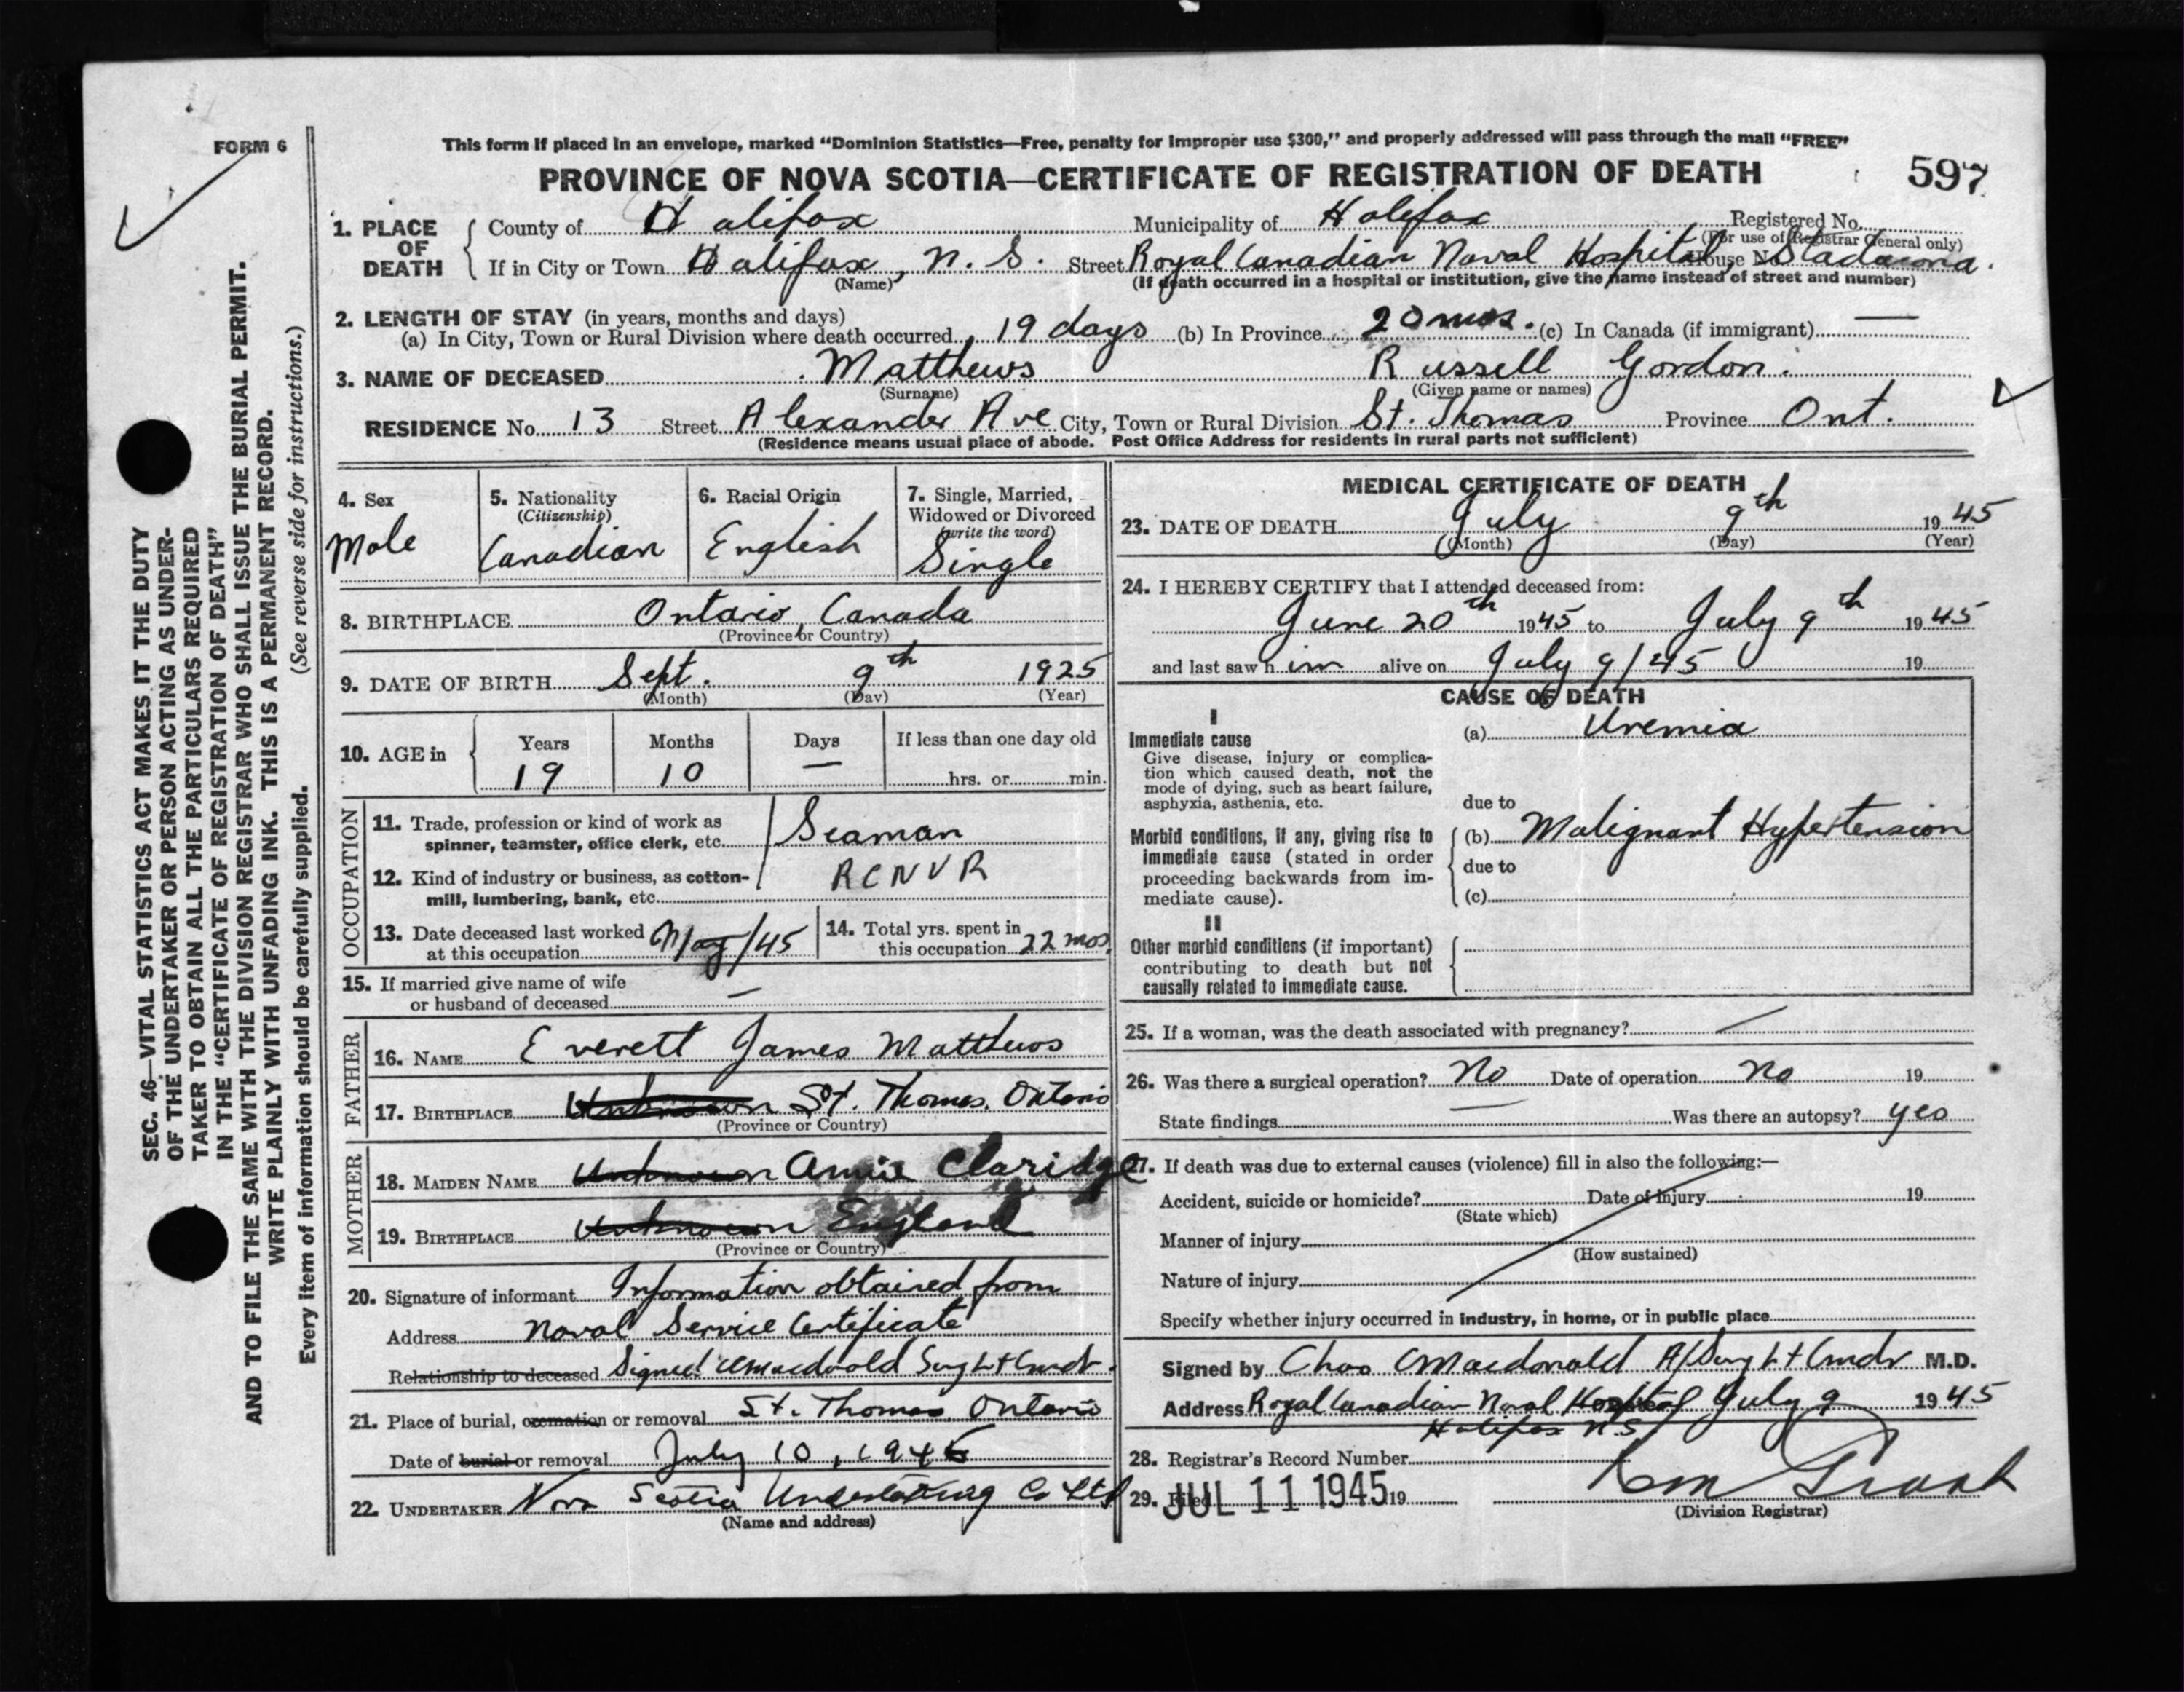 FORM 6
This form if placed in an envelope, marked "Dominion Statistics—Free, penalty for improper use $300," and properly addressed will pass through the mail "FREE"
PROVINCE OF NOVA SCOTIA—CERTIFICATE OF REGISTRATION OF DEATH
597
1. PLACE OF DEATH
County of Halifax Municipality of Halifax Registered No.
(For use of Registrar General only)
If in City or Town Halifax, N. S. Street Royal Canadian Naval Hospital, House No. Stadacona.
(Name) (If death occurred in a hospital or institution, give the name instead of street and number)
2. LENGTH OF STAY (in years, months and days)
(a) In City, Town or Rural Division where death occurred 19 days (b) In Province 20 mos. (c) In Canada (if immigrant) —
3. NAME OF DECEASED Matthews Russell Gordon.
(Surname) (Given name or names)
RESIDENCE No. 13 Street Alexander Ave City, Town or Rural Division St. Thomas Province Ont.
(Residence means usual place of abode. Post Office Address for residents in rural parts not sufficient)
4. Sex
Male
5. Nationality
(Citizenship)
Canadian
6. Racial Origin
English
7. Single, Married,
Widowed or Divorced
(write the word)
Single
8. BIRTHPLACE Ontario, Canada
(Province or Country)
9. DATE OF BIRTH Sept. 9th 1925
(Month) (Day) (Year)
10. AGE in
Years Months Days If less than one day old
19 10 — hrs. or min.
OCCUPATION
11. Trade, profession or kind of work as
spinner, teamster, office clerk, etc. Seaman
12. Kind of industry or business, as cotton-
mill, lumbering, bank, etc. RCNVR
13. Date deceased last worked
at this occupation May/45
14. Total yrs. spent in
this occupation 22 mos.
15. If married give name of wife
or husband of deceased —
FATHER
16. NAME Everett James Matthews
17. BIRTHPLACE Unknown St. Thomas, Ontario
(Province or Country)
MOTHER
18. MAIDEN NAME Unknown Annie Claridge
19. BIRTHPLACE Unknown England
(Province or Country)
20. Signature of informant Information obtained from
Address Naval Service Certificate
Relationship to deceased Signed CMacdonald Surg Lt Cmdr.
21. Place of burial, cremation or removal St. Thomas, Ontario
Date of burial or removal July 10, 1945
22. UNDERTAKER Nova Scotia Undertaking Co Ltd
(Name and address)
MEDICAL CERTIFICATE OF DEATH
23. DATE OF DEATH July 9th 1945
(Month) (Day) (Year)
24. I HEREBY CERTIFY that I attended deceased from:
June 20th 1945 to July 9th 1945
and last saw him alive on July 9/45 19
CAUSE OF DEATH
I
Immediate cause
Give disease, injury or complica-
tion which caused death, not the
mode of dying, such as heart failure,
asphyxia, asthenia, etc.
(a) Uremia
due to
Morbid conditions, if any, giving rise to
immediate cause (stated in order
proceeding backwards from im-
mediate cause).
(b) Malignant Hypertension
due to
(c)
II
Other morbid conditions (if important)
contributing to death but not
causally related to immediate cause.
25. If a woman, was the death associated with pregnancy?
26. Was there a surgical operation? No Date of operation No 19
State findings — Was there an autopsy? yes
27. If death was due to external causes (violence) fill in also the following:—
Accident, suicide or homicide? Date of injury 19
(State which)
Manner of injury
(How sustained)
Nature of injury
Specify whether injury occurred in industry, in home, or in public place
Signed by Chas CMacdonald A/Surg Lt Cmdr M.D.
Address Royal Canadian Naval Hospital July 9 1945
Halifax N.S
28. Registrar's Record Number
29. Filed JUL 11 1945 19
(Division Registrar)
SEC. 46—VITAL STATISTICS ACT MAKES IT THE DUTY
OF THE UNDERTAKER OR PERSON ACTING AS UNDER-
TAKER TO OBTAIN ALL THE PARTICULARS REQUIRED
IN THE "CERTIFICATE OF REGISTRATION OF DEATH"
AND TO FILE THE SAME WITH THE DIVISION REGISTRAR WHO SHALL ISSUE THE BURIAL PERMIT.
WRITE PLAINLY WITH UNFADING INK. THIS IS A PERMANENT RECORD.
Every item of information should be carefully supplied. (See reverse side for instructions.)